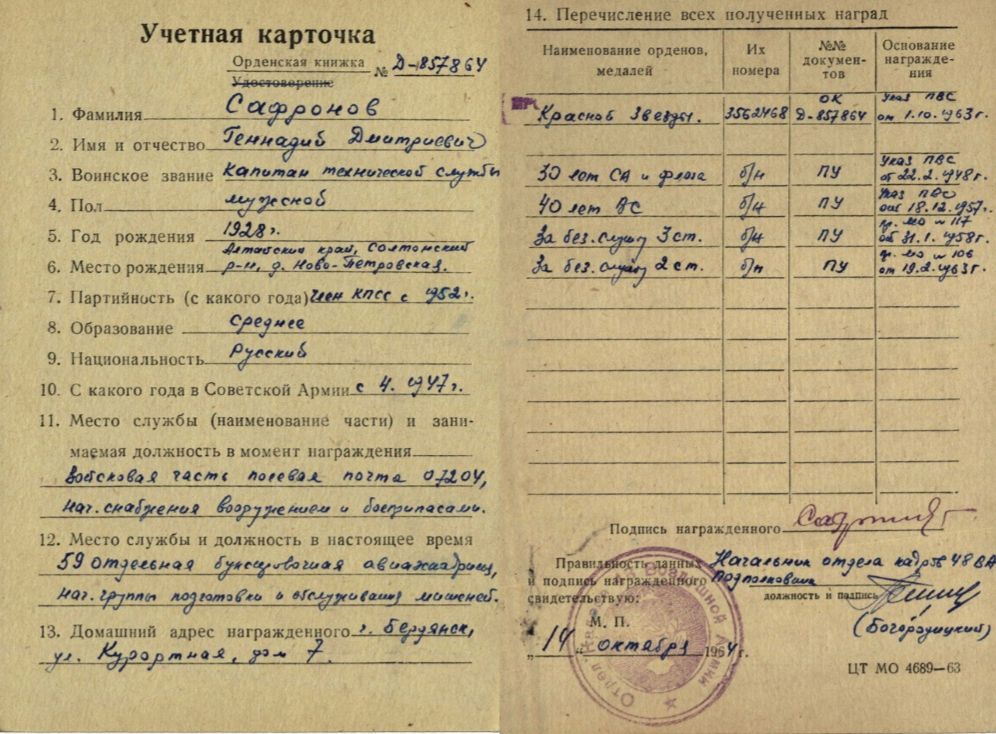 Учетная карточка
Орденская книжка № Д-857864
Удостоверение
1. Фамилия Сафронов
2. Имя и отчество Геннадий Дмитриевич
3. Воинское звание Капитан технической службы
4. Пол мужской
5. Год рождения 1928 г.
Алтайский край, Солтонский
6. Место рождения р-н, д. Ново-Петровская.
7. Партийность (с какого года) член КПСС с 1952 г.
8. Образование среднее
9. Национальность Русский
10. С какого года в Советской Армии с 4. 1947 г.
11. Место службы (наименование части) и зани-
маемая должность в момент награждения
Войсковая часть полевая почта 07204,
нач. снабжения вооружением и боеприпасами.
12. Место службы и должность в настоящее время
59 отдельная буксировочная авиаэскадрилья,
нач. группы подготовки и обслуживания мишеней.
13. Домашний адрес награжденного г. Бердянск,
ул. Курортная, дом 7.
14. Перечисление всех полученных наград
Наименование орденов, медалей
Их номера
№№ документов
Основание награждения
Красной Звезды. 3562468 ОК Д-857864 Указ ПВС от 1.10.1963 г.
30 лет СА и флота б/н ПУ Указ ПВС от 22.2.1948 г.
40 лет ВС б/н ПУ Указ ПВС от 18.12.1957 г.
За без. службу 3 ст. б/н ПУ пр. МО № 117 от 31.1.1958 г.
За без. службу 2 ст. б/н ПУ пр. МО № 106 от 19.2.1963 г.
Подпись награжденного
Правильность данных Начальник отдела кадров 48 ВА
и подпись награжденного Подполковник
свидетельствую: должность и подпись
(Богородицкий)
М. П.
„14" октября 1964 г.
ЦТ МО 4689—63